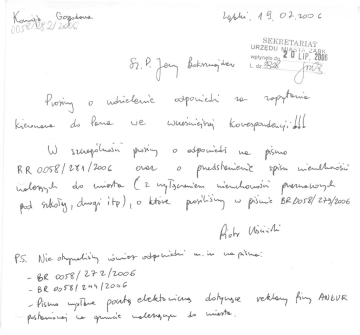 Komisja Gospodarna
0058/282/2006
Ząbki, 19.07.2006
SEKRETARIAT
URZĘDU MIASTA ZĄBKI
wpłynęło dn. 20 LIP. 2006
L. dz.
Sz. P. Jerzy Boksznajder
Prosimy o udzielenie odpowiedzi na zapytania
kierowane do Pana we wcześniejszej korespondencji!!!
W szczególności prosimy o odpowiedź na pismo
BR 0058/281/2006 oraz o przedstawienie spisu nieruchomości
należących do miasta (z wyłączeniem nieruchomości przeznaczonych
pod szkoły, drogi itp), o które prosiliśmy w piśmie BR 0058/279/2006
Piotr Uściński
P.S. Nie otrzymaliśmy również odpowiedzi m. in. na pisma:
- BR 0058/272/2006
- BR 0058/244/2006
- Pismo wysłane pocztą elektroniczną dotyczące reklamy firmy
postawionej na gruncie należącym do miasta.